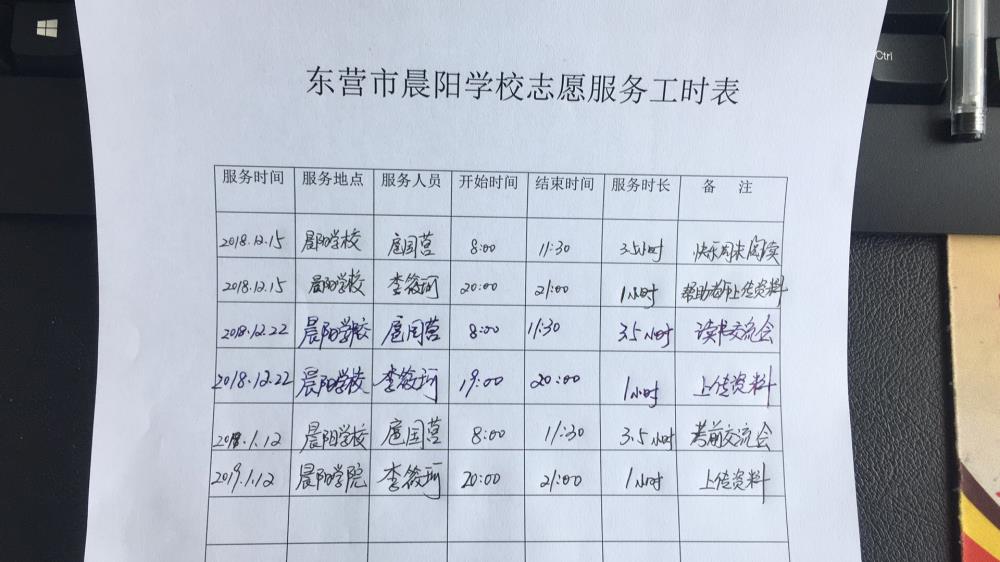 Ctrl
东营市晨阳学校志愿服务工时表
服务时间 服务地点 服务人员 开始时间 结束时间 服务时长 备 注
2018.12.15 晨阳学校 扈国营 8:00 11:30 3.5小时 快乐周末阅读
2018.12.15 晨阳学校 李筱珂 20:00 21:00 1小时 帮助老师上传资料
2018.12.22 晨阳学校 扈国营 8:00 11:30 3.5小时 读书交流会
2018.12.22 晨阳学校 李筱珂 19:00 20:00 1小时 上传资料
2018.1.12 晨阳学校 扈国营 8:00 11:30 3.5小时 考前交流会
2019.1.12 晨阳学院 李筱珂 20:00 21:00 1小时 上传资料